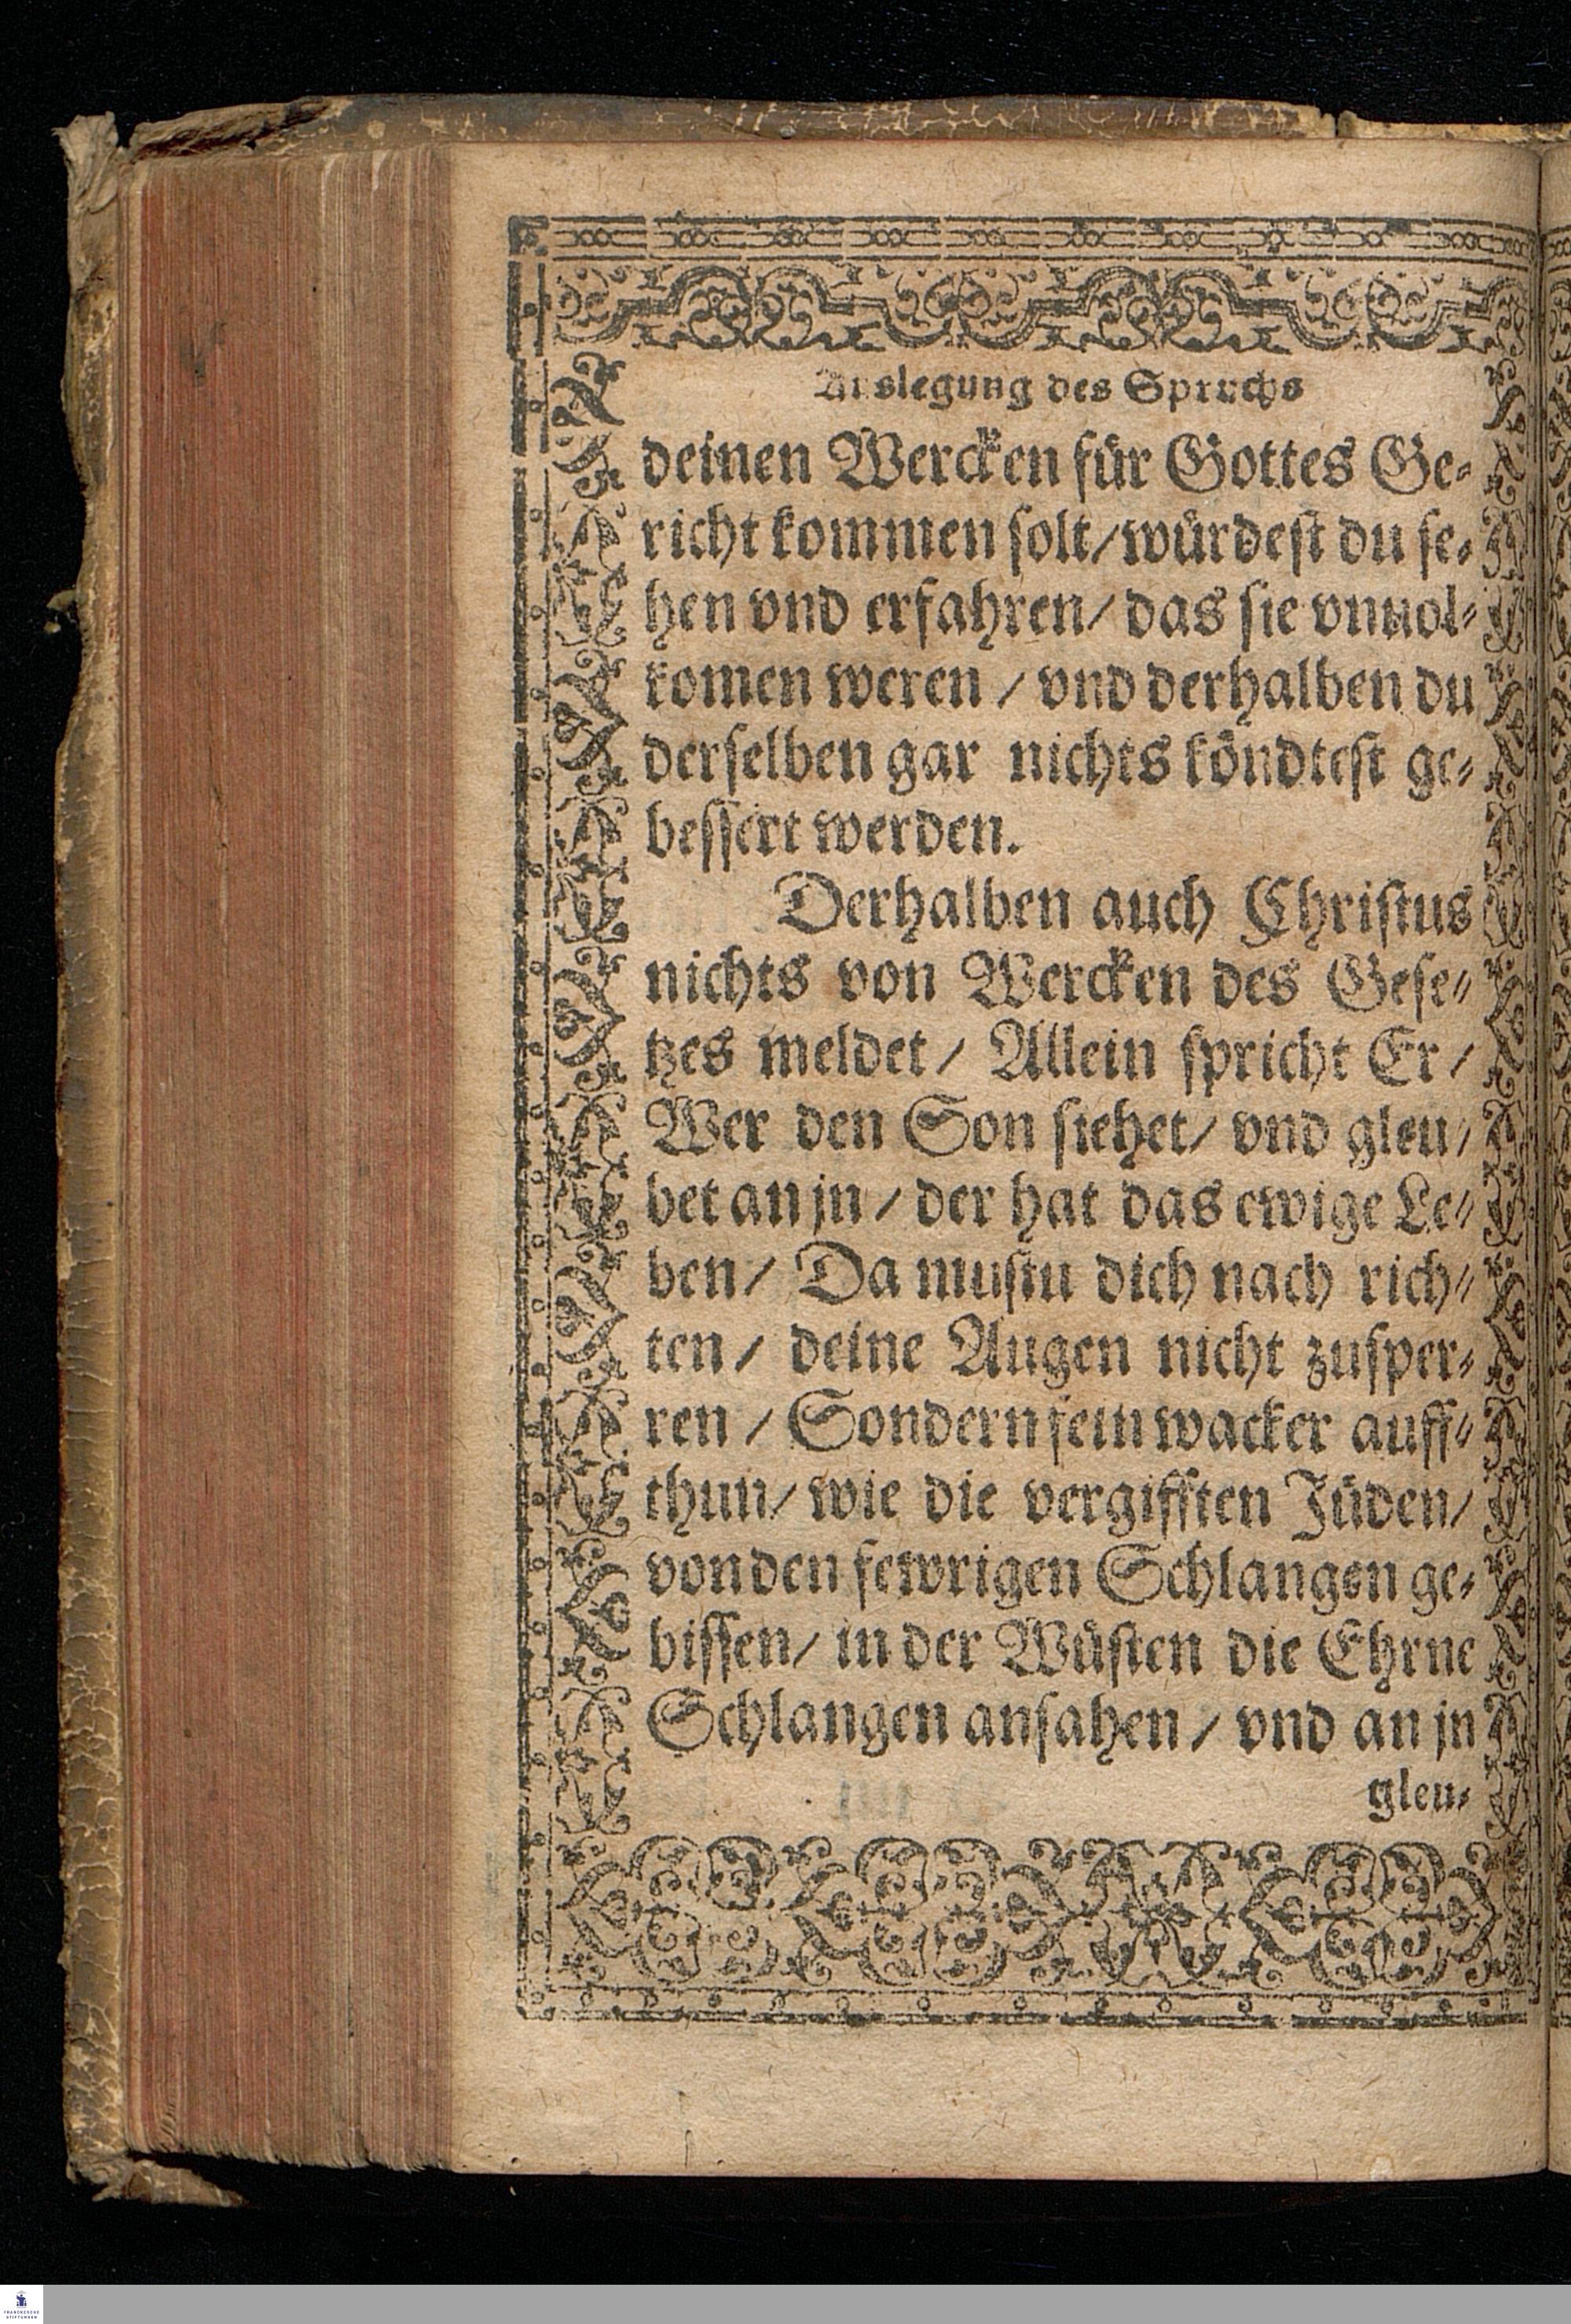 Auslegung des Spruchs
deinen Wercken für Gottes Ge-
richt kommen solt/ würdest du se-
hen vnd erfahren/ das sie vnuol-
komen weren / vnd derhalben du
derselben gar nichts köndtest ge-
bessert werden.
Derhalben auch Christus
nichts von Wercken des Gese-
tzes meldet/ Allein spricht Er/
Wer den Son siehet/ vnd gleu-
bet an jn/ der hat das ewige Le-
ben/ Da mustu dich nach rich-
ten/ deine Augen nicht zusper-
ren / Sondern fein wacker auff-
thun/ wie die vergifften Jüden/
von den fewrigen Schlangen ge-
bissen/ in der Wüsten die Ehrne
Schlangen ansahen/ vnd an jn
gleu-
FRANCKESCHE
STIFTUNGEN